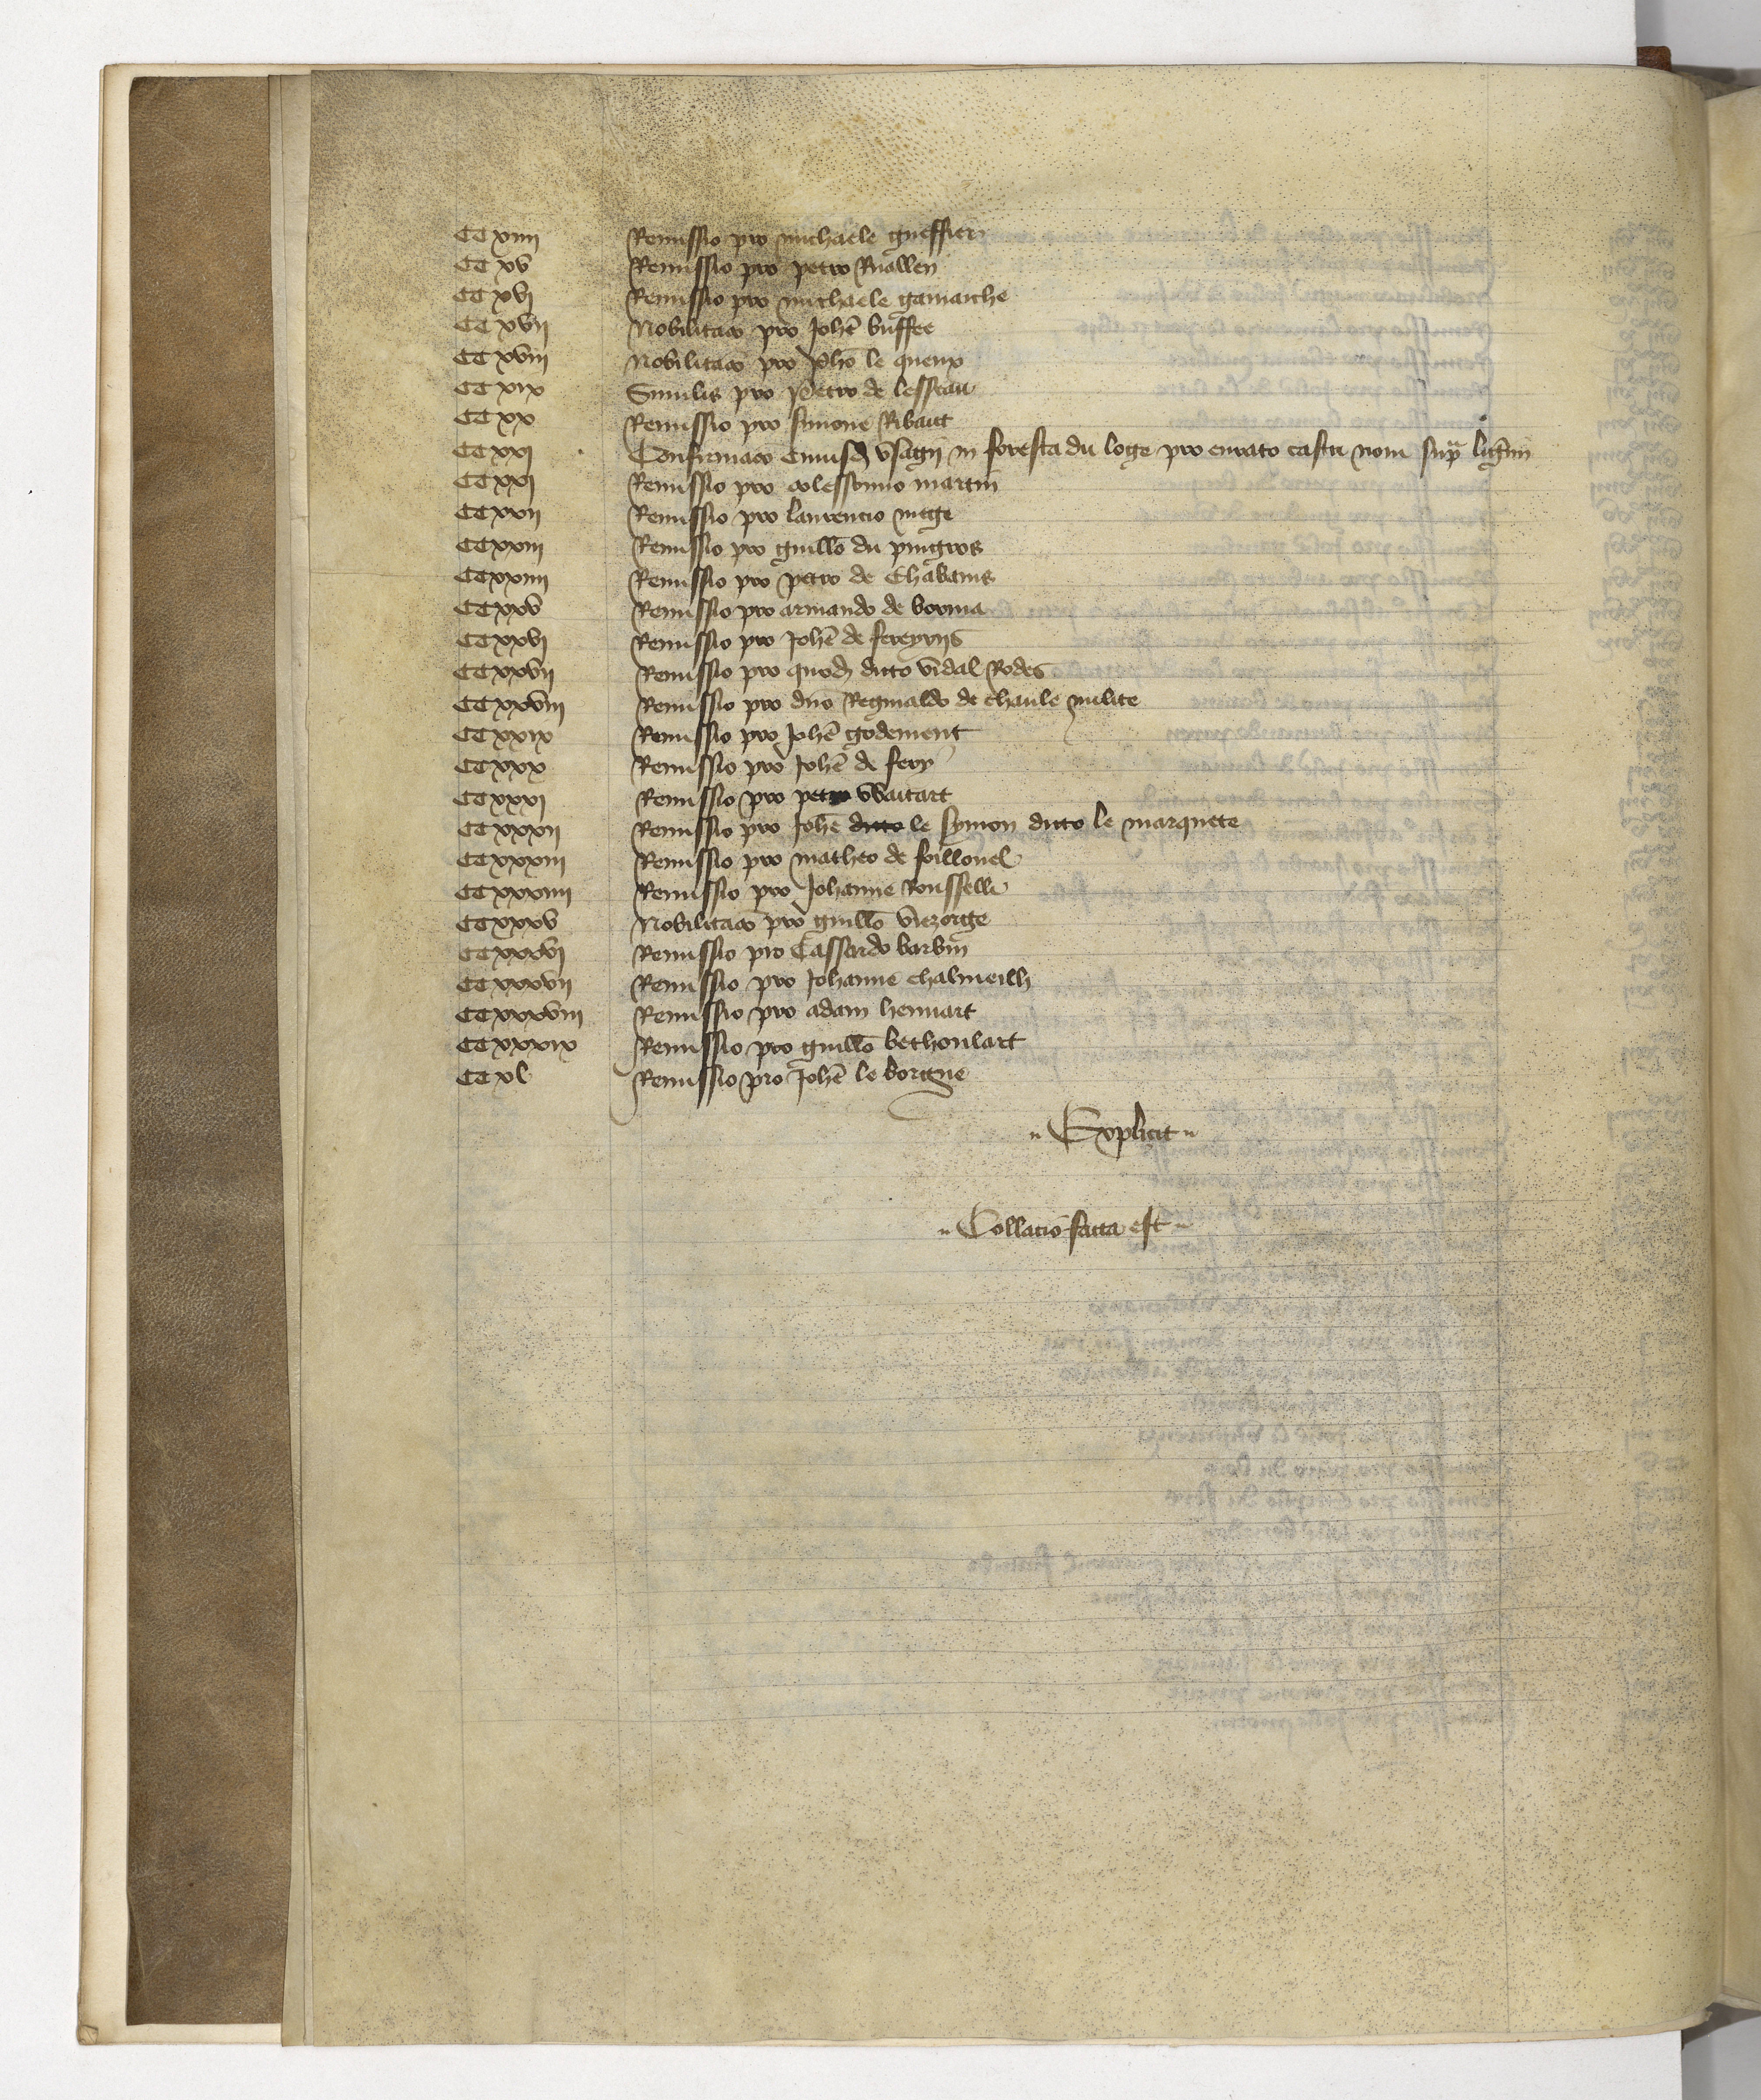 CC xiiii Remissio pro michaele gueffier
CC xv Remissio pro petro Ruallen
CC xvi Remissio pro michaele gamaiche
CC xvii Nobilitacio pro Johe buffee
CC xviii Nobilitacio pro Joho le queux
CC xix Similis pro Petro de lesseau
CC xx Remissio pro symone Ribaut
CC xxi Confirmacio cuiusd usagii in foresta du loge pro curato castri novi supra ligerim
CC xxi Remissio pro martin
CC xxii Remissio pro laurencio mege
CC xxiii Remissio pro guillo du puigros
CC xxiiii Remissio pro petro de Chabanis
CC xxv Remissio pro armando de borma
CC xxvi Remissio pro Johe de fereyriis
CC xxvii Remissio pro quod dicto vidal Rodes
CC xxviii Remissio pro dno Reginaldo de chaule milite
CC xxix Remissio pro Johe godement
CC xxx Remissio pro Johe de fery
CC xxxi Remissio pro petro waitart
CC xxxii Remissio pro Johe dicto le symon dicto le marquete
CC xxxiii Remissio pro matheo de foillouel
CC xxxiiii Remissio pro Johanne Rousselli
CC xxxv Nobilitacio pro guillo viezorge
CC xxxvi Remissio pro Cassardo barbin
CC xxxvii Remissio pro Johanne chalmeilh
CC xxxviii Remissio pro adam hennart
CC xxxix Remissio pro guillo bethoulart
CC xl Remissio pro Johe le borgne
Explicit
Collacio facta est